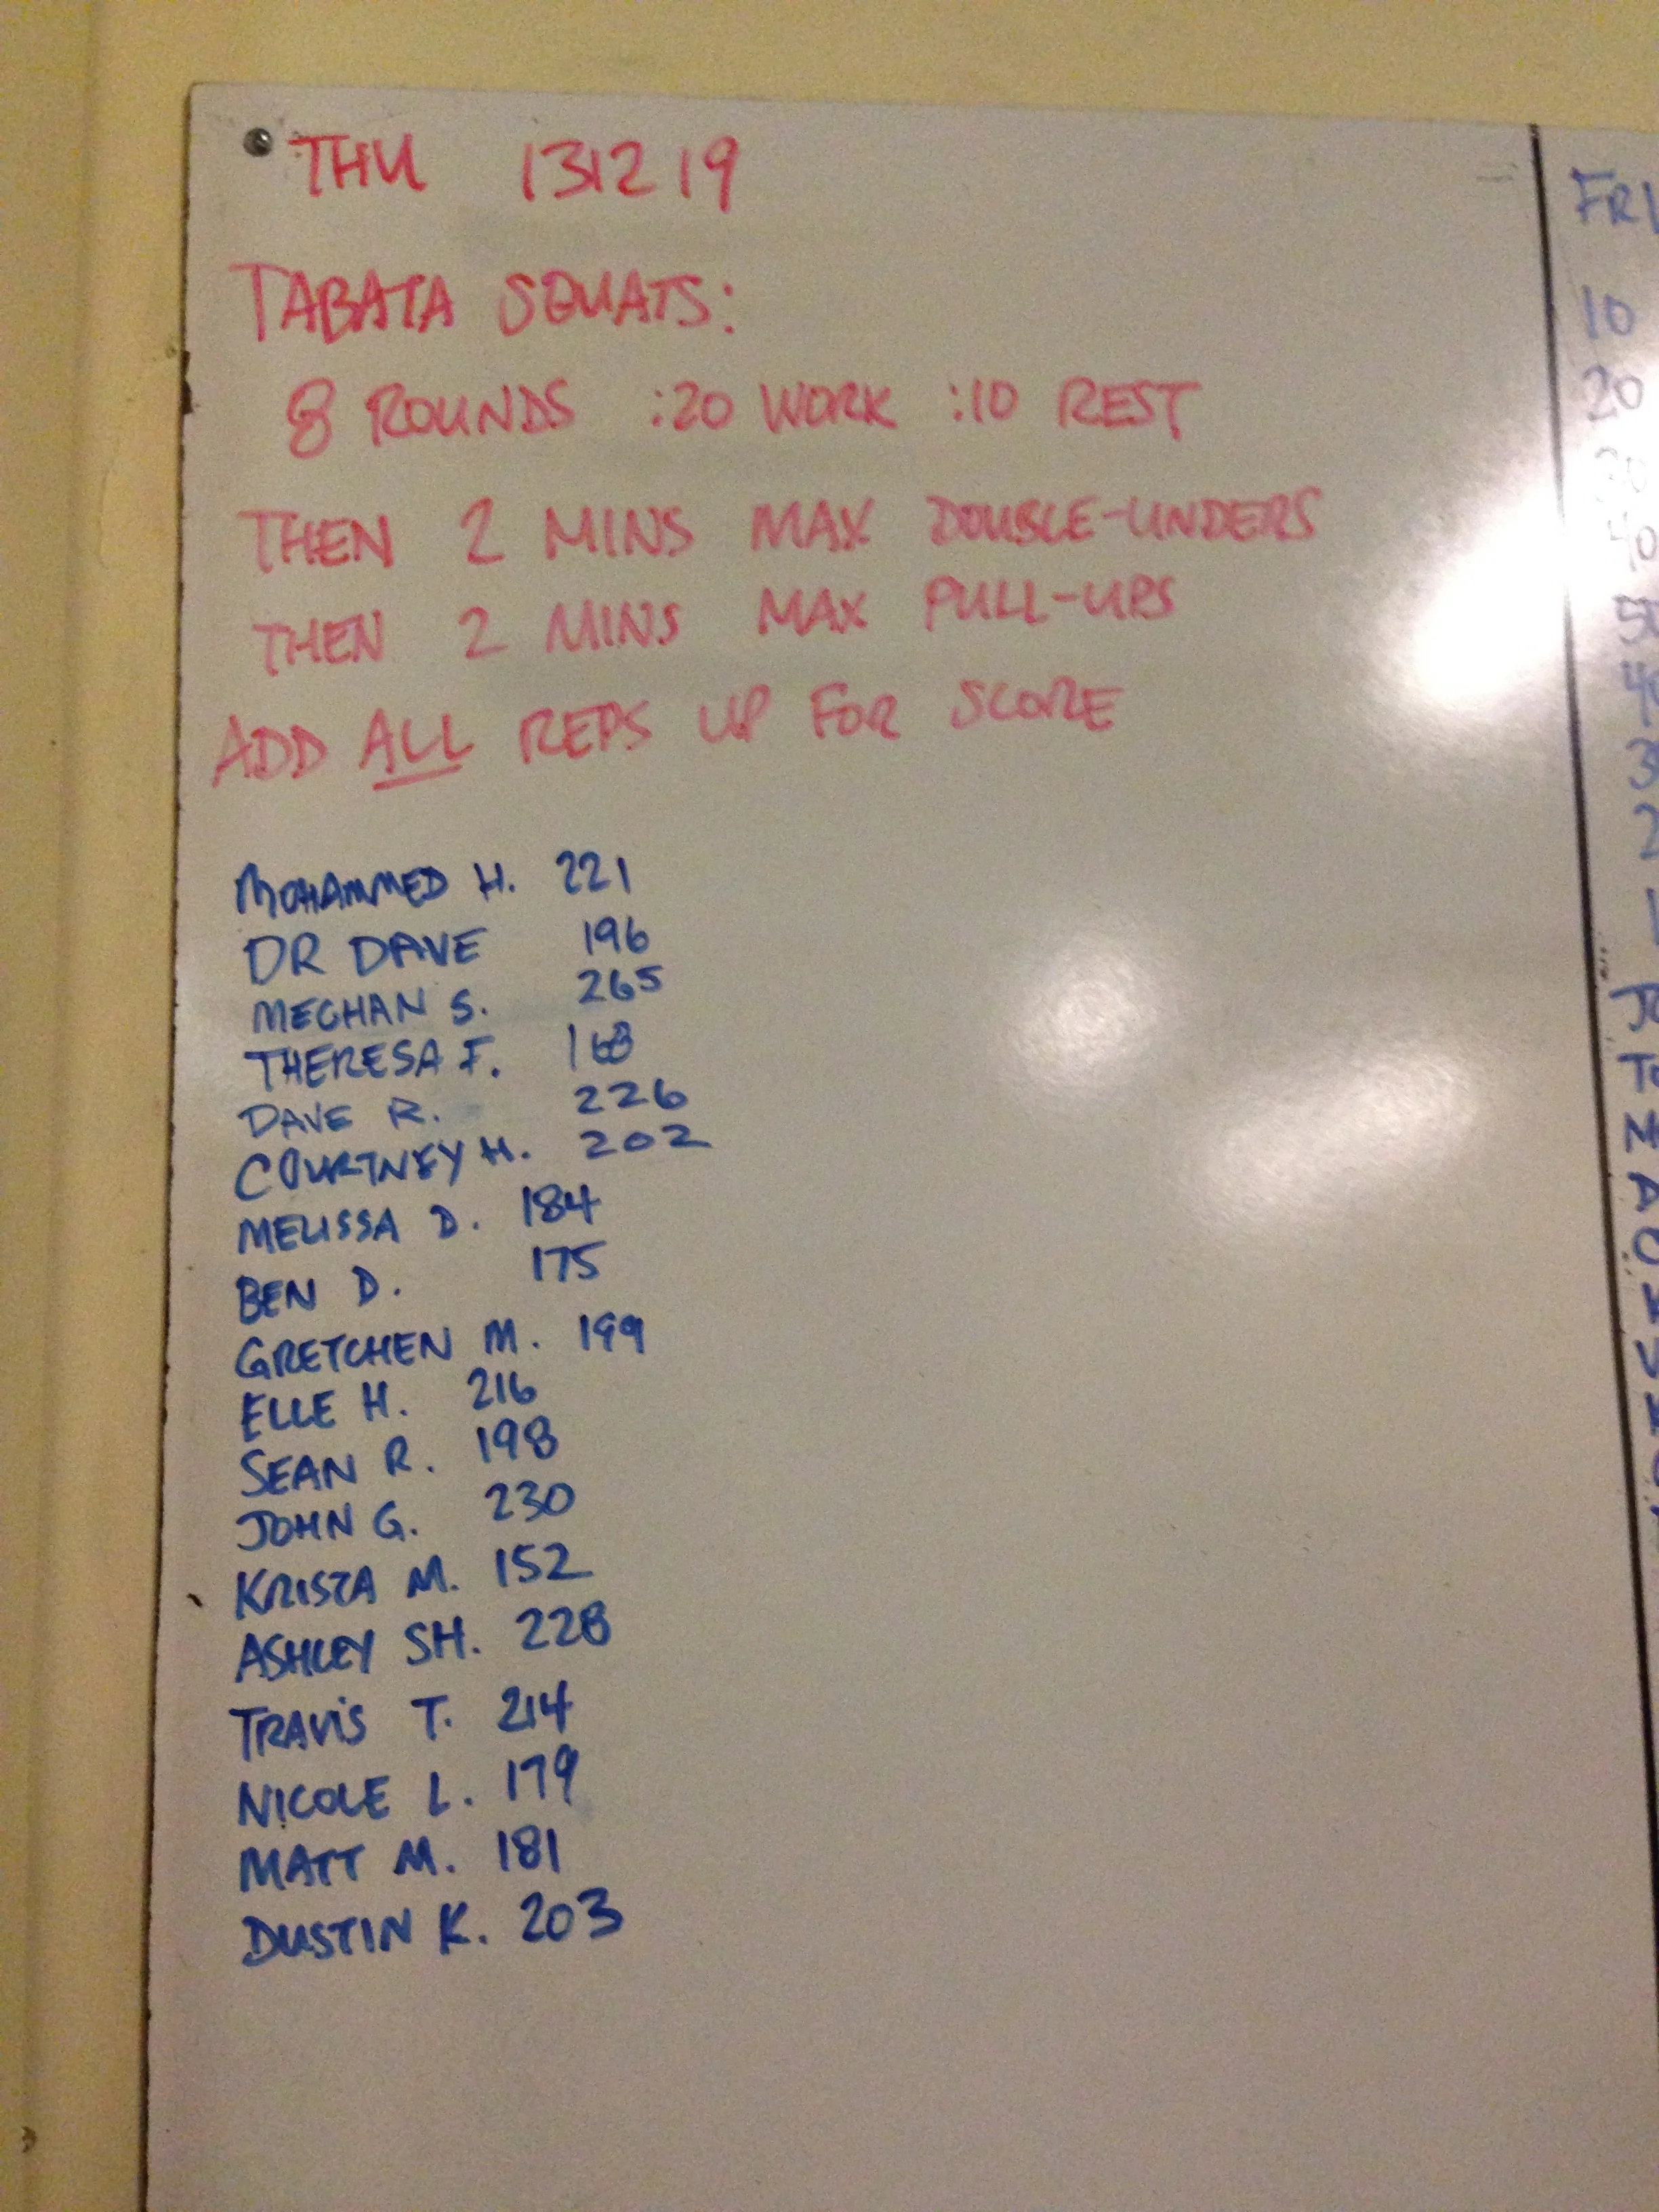 THU 131219
TABATA SQUATS:
8 ROUNDS :20 WORK :10 REST
THEN 2 MINS MAX DOUBLE-UNDERS
THEN 2 MINS MAX PULL-UPS
ADD ALL REPS UP FOR SCORE
MOHAMMED H. 221
DR DAVE 196
MEGHAN S. 265
THERESA F. 168
DAVE R. 226
COURTNEY H. 202
MELISSA D. 184
BEN D. 175
GRETCHEN M. 199
ELLE H. 216
SEAN R. 198
JOHN G. 230
KRISTA M. 152
ASHLEY SH. 228
TRAVIS T. 214
NICOLE L. 179
MATT M. 181
DUSTIN K. 203
FRI
10
20
30
40